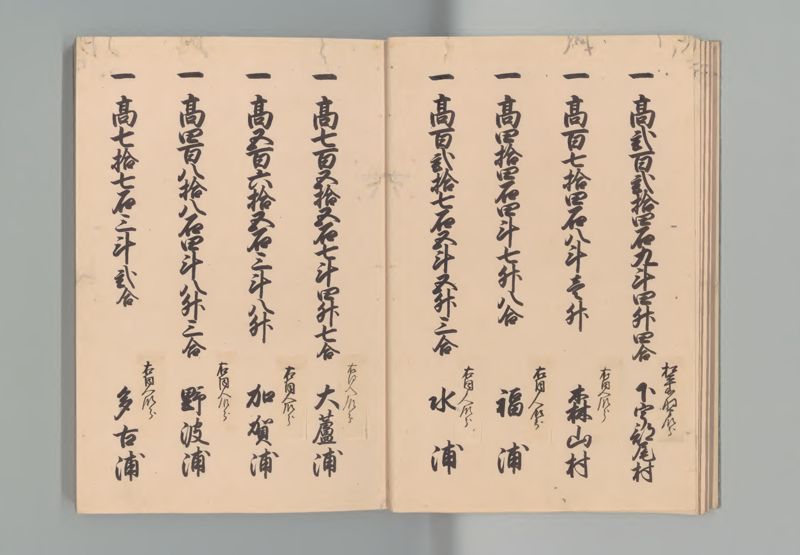 一 高弐百弐拾四石九斗四升四合
下宇部尾村
一 高百七拾四石八斗壱升
右同人領分
森山村
一 高四拾四石四斗七升八合
右同人領分
福浦
一 高百弐拾七石五斗五升三合
右同人領分
水浦
一 高七百五拾五石七斗四升七合
右同人領分
大蘆浦
一 高五百六拾五石三斗八升
右同人領分
加賀浦
一 高四百八拾八石四斗八升三合
右同人領分
野波浦
一 高七拾七石三斗弐合
右同人領分
多古浦